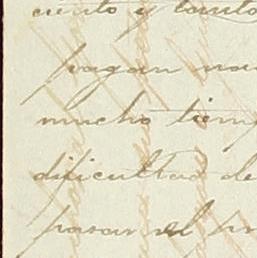 ciento y tanto
pagan
mucho tiemp
dificultad de
pasar el pr